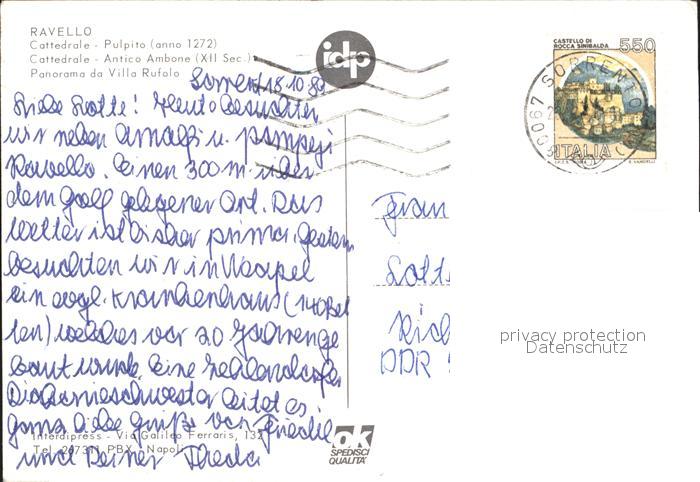 RAVELLO
Cattedrale - Pulpito (anno 1272)
Cattedrale - Antico Ambone (XII Sec.)
Panorama da Villa Rufolo
idp
CASTELLO DI
ROCCA SINIBALDA
550
ITALIA
SORRENTO
Sorrent 18.10.89
Liebe Lotte! Heute besuchten
wir neben Amalfi u. Pompeji
Ravello. Einen 300 m über
dem Golf gelegener Ort. Das
Wetter ist bisher prima. Gestern
besuchten wir in Neapel
ein evgl. Krankenhaus (140 Bet
ten) welches vor 20 Jahren
baut wurde. Eine
Diakonieschwester leitet es.
Ganz liebe Grüße von Friedel
und Deiner Theda
Frau
Lott
Rich
DDR
Interdipress - Via Galileo Ferraris, 132
Tel. PBX - Napoli
ok
SPEDISCI
QUALITÀ
privacy protection
Datenschutz